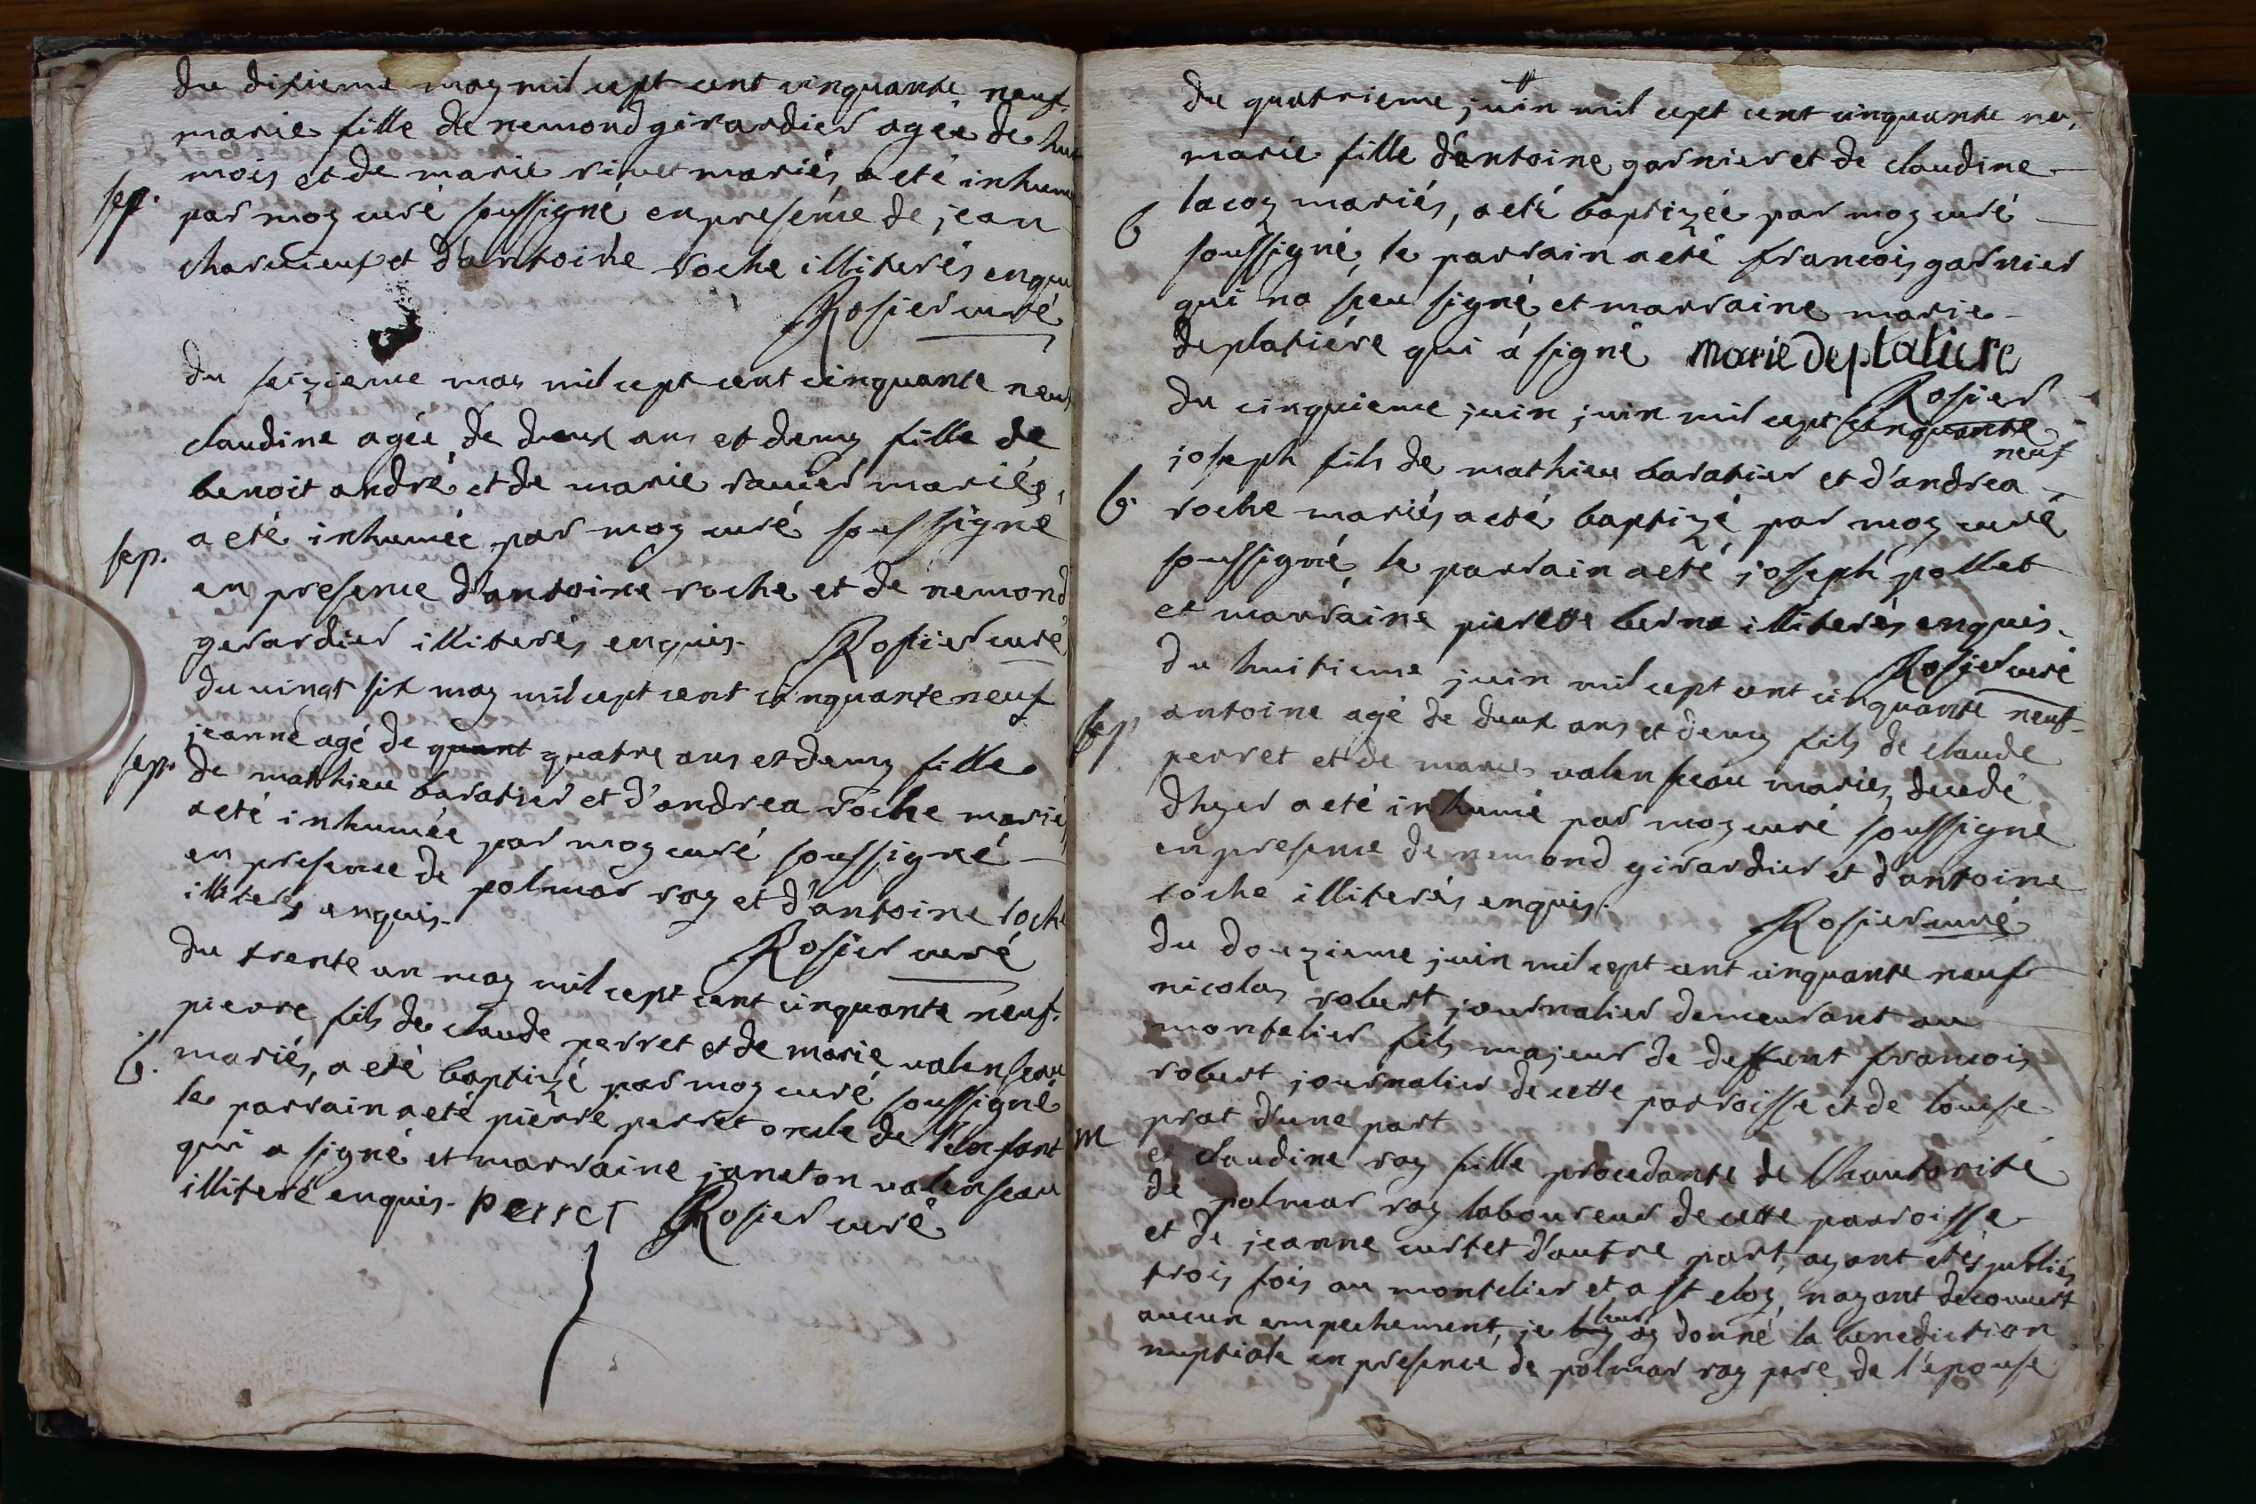 du dixieme may mil sept cent cinquante neuf.
marie fille de nemond girardier agée de huit
mois et de marie rivet mariés a eté inhumé
sep. par moy curé soussigné en presence de jean
charucieux et d'antoine roche illiterés enquis
Rosier curé
du seizieme may mil cept cent cinquante neuf
claudine agée de deux ans et demy fille de
benoit andré et de marie raucier mariés,
sep. a eté inhumée par moy curé soussigné
en presence d'antoine roche et de nemond
gerardier illiterés enquis. Rosier curé
du vingt six may mil cept cent cinquante neuf
jeanne agé de quant quatre ans et demy fille
sep. de matthieu baratier et d'andrea roche mariés
a eté inhumée par moy curé soussigné
en presence de polmar ray et d'antoine roche
illiterés enquis.
Rosier curé
du trente un may mil cept cent cinquante neuf.
pierre fils de claude perret et de marie valenseau
b. mariés, a eté baptizé par moy curé soussigné
le parrain a eté pierre perret oncle de l'enfant
qui a signé et marraine janeton valenseau
illiteré enquis. perret Rosier curé
du quatrieme juin mil cept cent cinquante neu,
marie fille d'antoine garnier et de claudine
b lacoy mariés, a eté baptizée par moy curé
soussigné, le parrain a eté francois garnier
qui na sceu signé et marraine marie
deplatiére qui á signé marie deplatiere
Rosier
du cinquieme juin juin mil cept cinquante
neuf
joseph fils de mathieu baratier et d'andrea
b. roche mariés a eté baptizé par moy curé
soussigné, le parrain a eté joseph pollet
et marraine pierette berne illiterés enquis.
Rosier curé
du huitieme juin mil cept cent cinquante neuf.
sep antoine agé de deux ans et demy fils de claude
perret et de marie valenseau mariés, decedé
dhyer a eté inhumé par moy curé soussigné
en presence de nemond girardier et d'antoine
roche illiterés enquis.
Rosier curé
du douzieme juin mil cept cent cinquante neuf
nicolas robert journalier demeurant au
montelier fils majeur de deffunt francois
robert journalier de cette parroisse et de louise
prat d'une part
m et claudine ray fille procedante de l'hautorité
de polmar ray laboureur de cette parroisse
et de jeanne curtet d'autre part, ayant etés publiés
trois fois au montelier et a st eloy, nayant decouvert
aucun empechement, je luy leur ay donné la benediction
nuptiale en presence de polmar ray pere de l'epouse